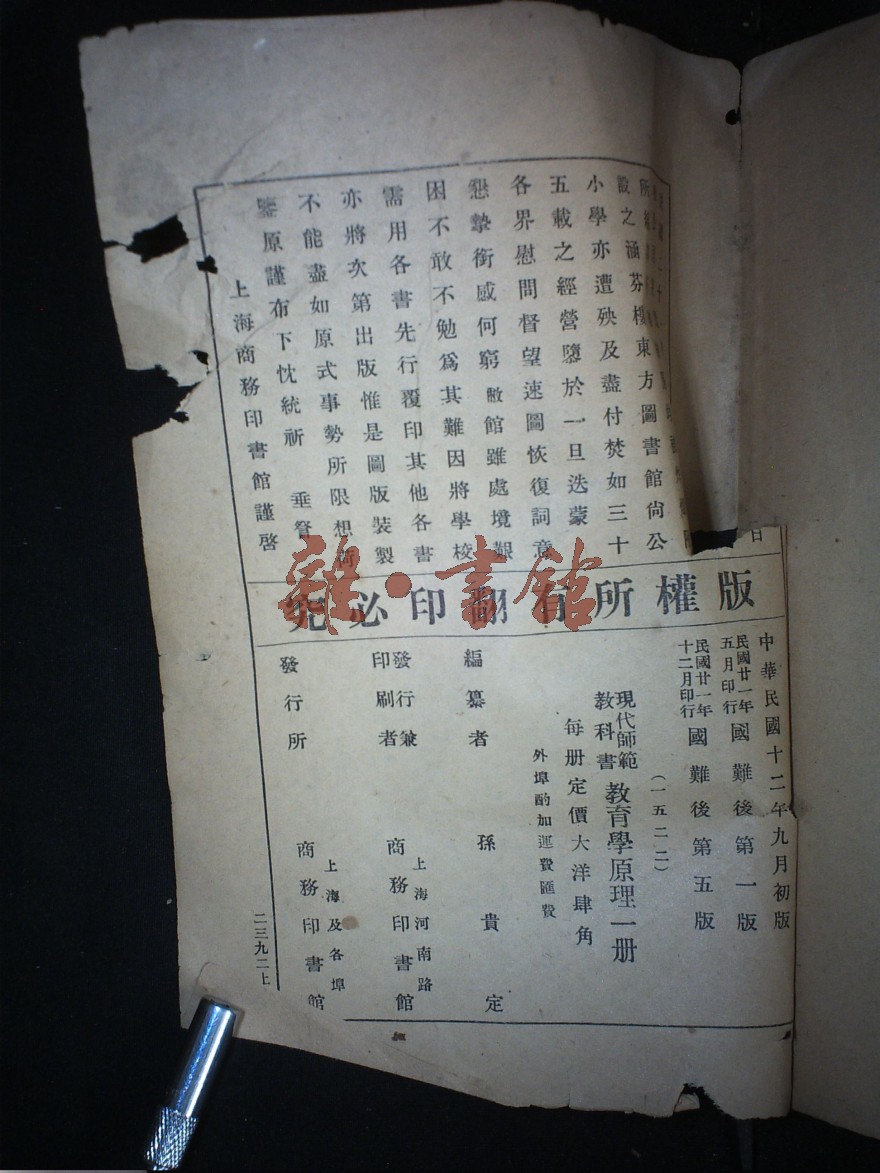 設之涵芬樓東方圖書館尙公
小學亦遭殃及盡付焚如三十
五載之經營隳於一旦迭蒙
各界慰問督望速圖恢復詞意
懇摯銜感何窮敝館雖處境艱
困不敢不勉爲其難因將學校
需用各書先行覆印其他各書
亦將次第出版惟是圖版裝製
不能盡如原式事勢所限想荷
鑒原謹布下忱統祈 垂詧
上海商務印書館謹啓
版權所有翻印必究
中華民國十二年九月初版
民國廿一年五月印行國難後第一版
民國廿一年十二月印行國難後第五版
(一五二二)
現代師範教科書 教育學原理一册
每册定價大洋肆角
外埠酌加運費匯費
編纂者 孫貴定
發行兼印刷者 上海河南路 商務印書館
發行所 上海及各埠 商務印書館
二三九二上
雜·書館